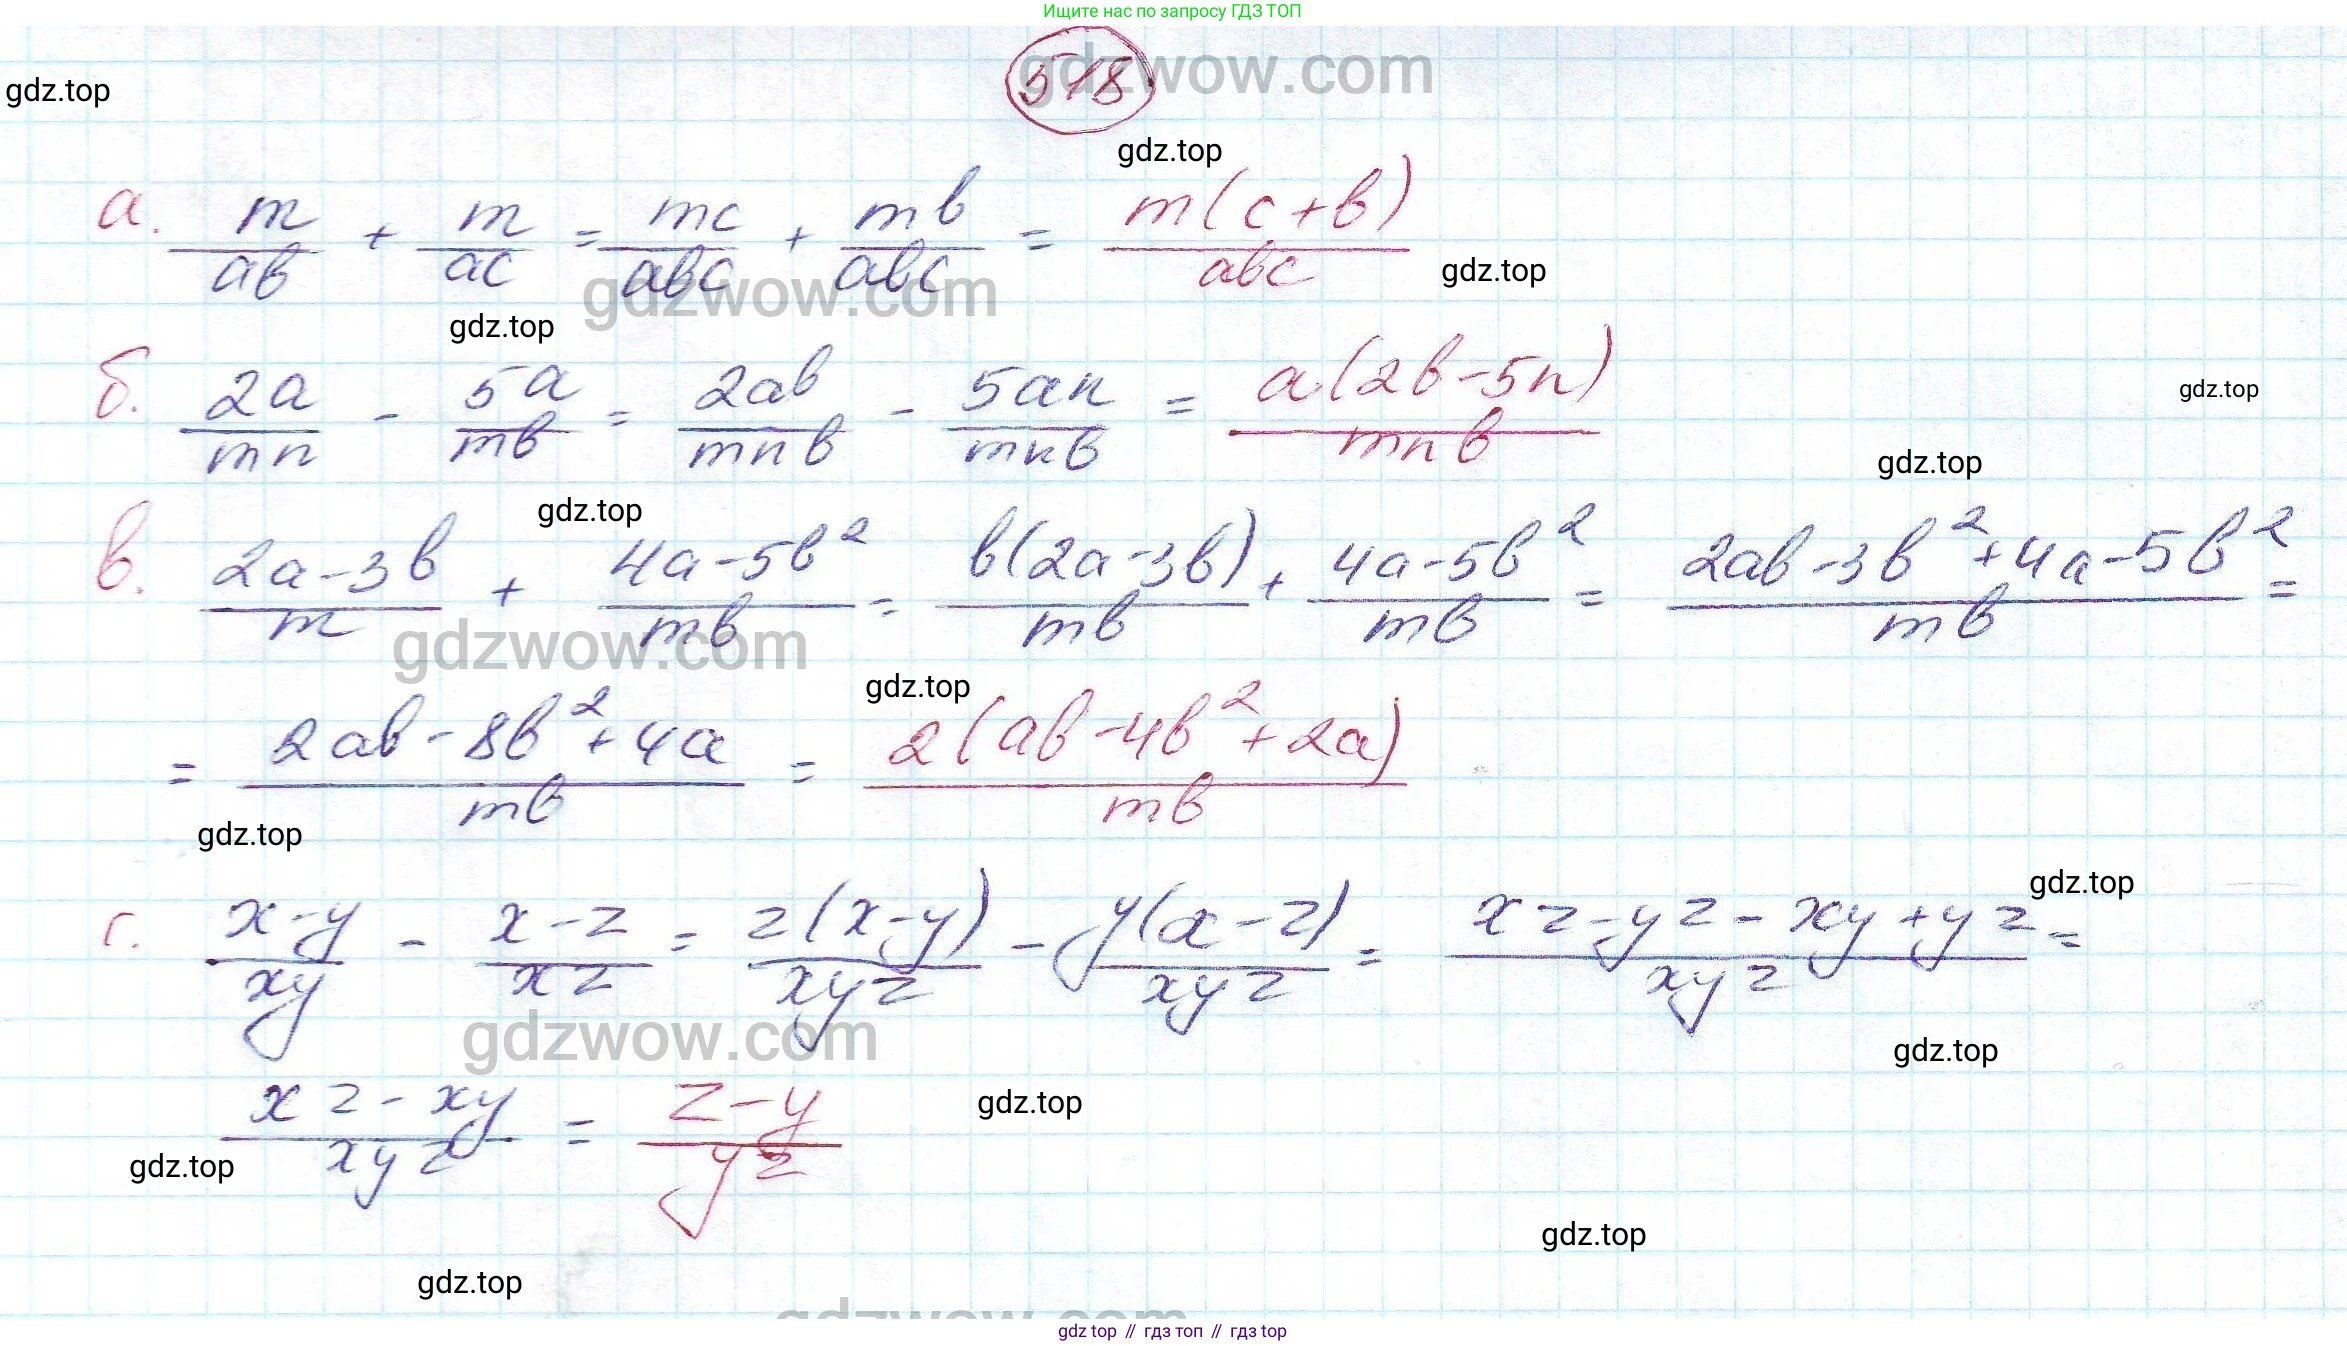 Ищите нас по запросу ГДЗ ТОП
gdzwow.com
518
gdz.top
gdz.top
а. m/ab + m/ac = mc/abc + mb/abc = m(c+b)/abc
gdz.top
gdzwow.com
gdz.top
б. 2a/mn - 5a/mb = 2ab/mnb - 5an/mnb = a(2b-5n)/mnb
gdz.top
gdz.top
gdz.top
в. (2a-3b)/m + (4a-5b²)/mb = b(2a-3b)/mb + (4a-5b²)/mb = (2ab-3b²+4a-5b²)/mb =
gdzwow.com
gdz.top
= (2ab-8b²+4a)/mb = 2(ab-4b²+2a)/mb
gdz.top
gdz.top
г. (x-y)/xy - (x-z)/xz = z(x-y)/xyz - y(x-z)/xyz = (xz-yz-xy+yz)/xyz =
gdzwow.com
gdz.top
(xz-xy)/xyz = (z-y)/yz
gdz.top
gdz.top
gdz.top
gdz.top
gdzwow.com
gdz top // гдз топ // гдз top